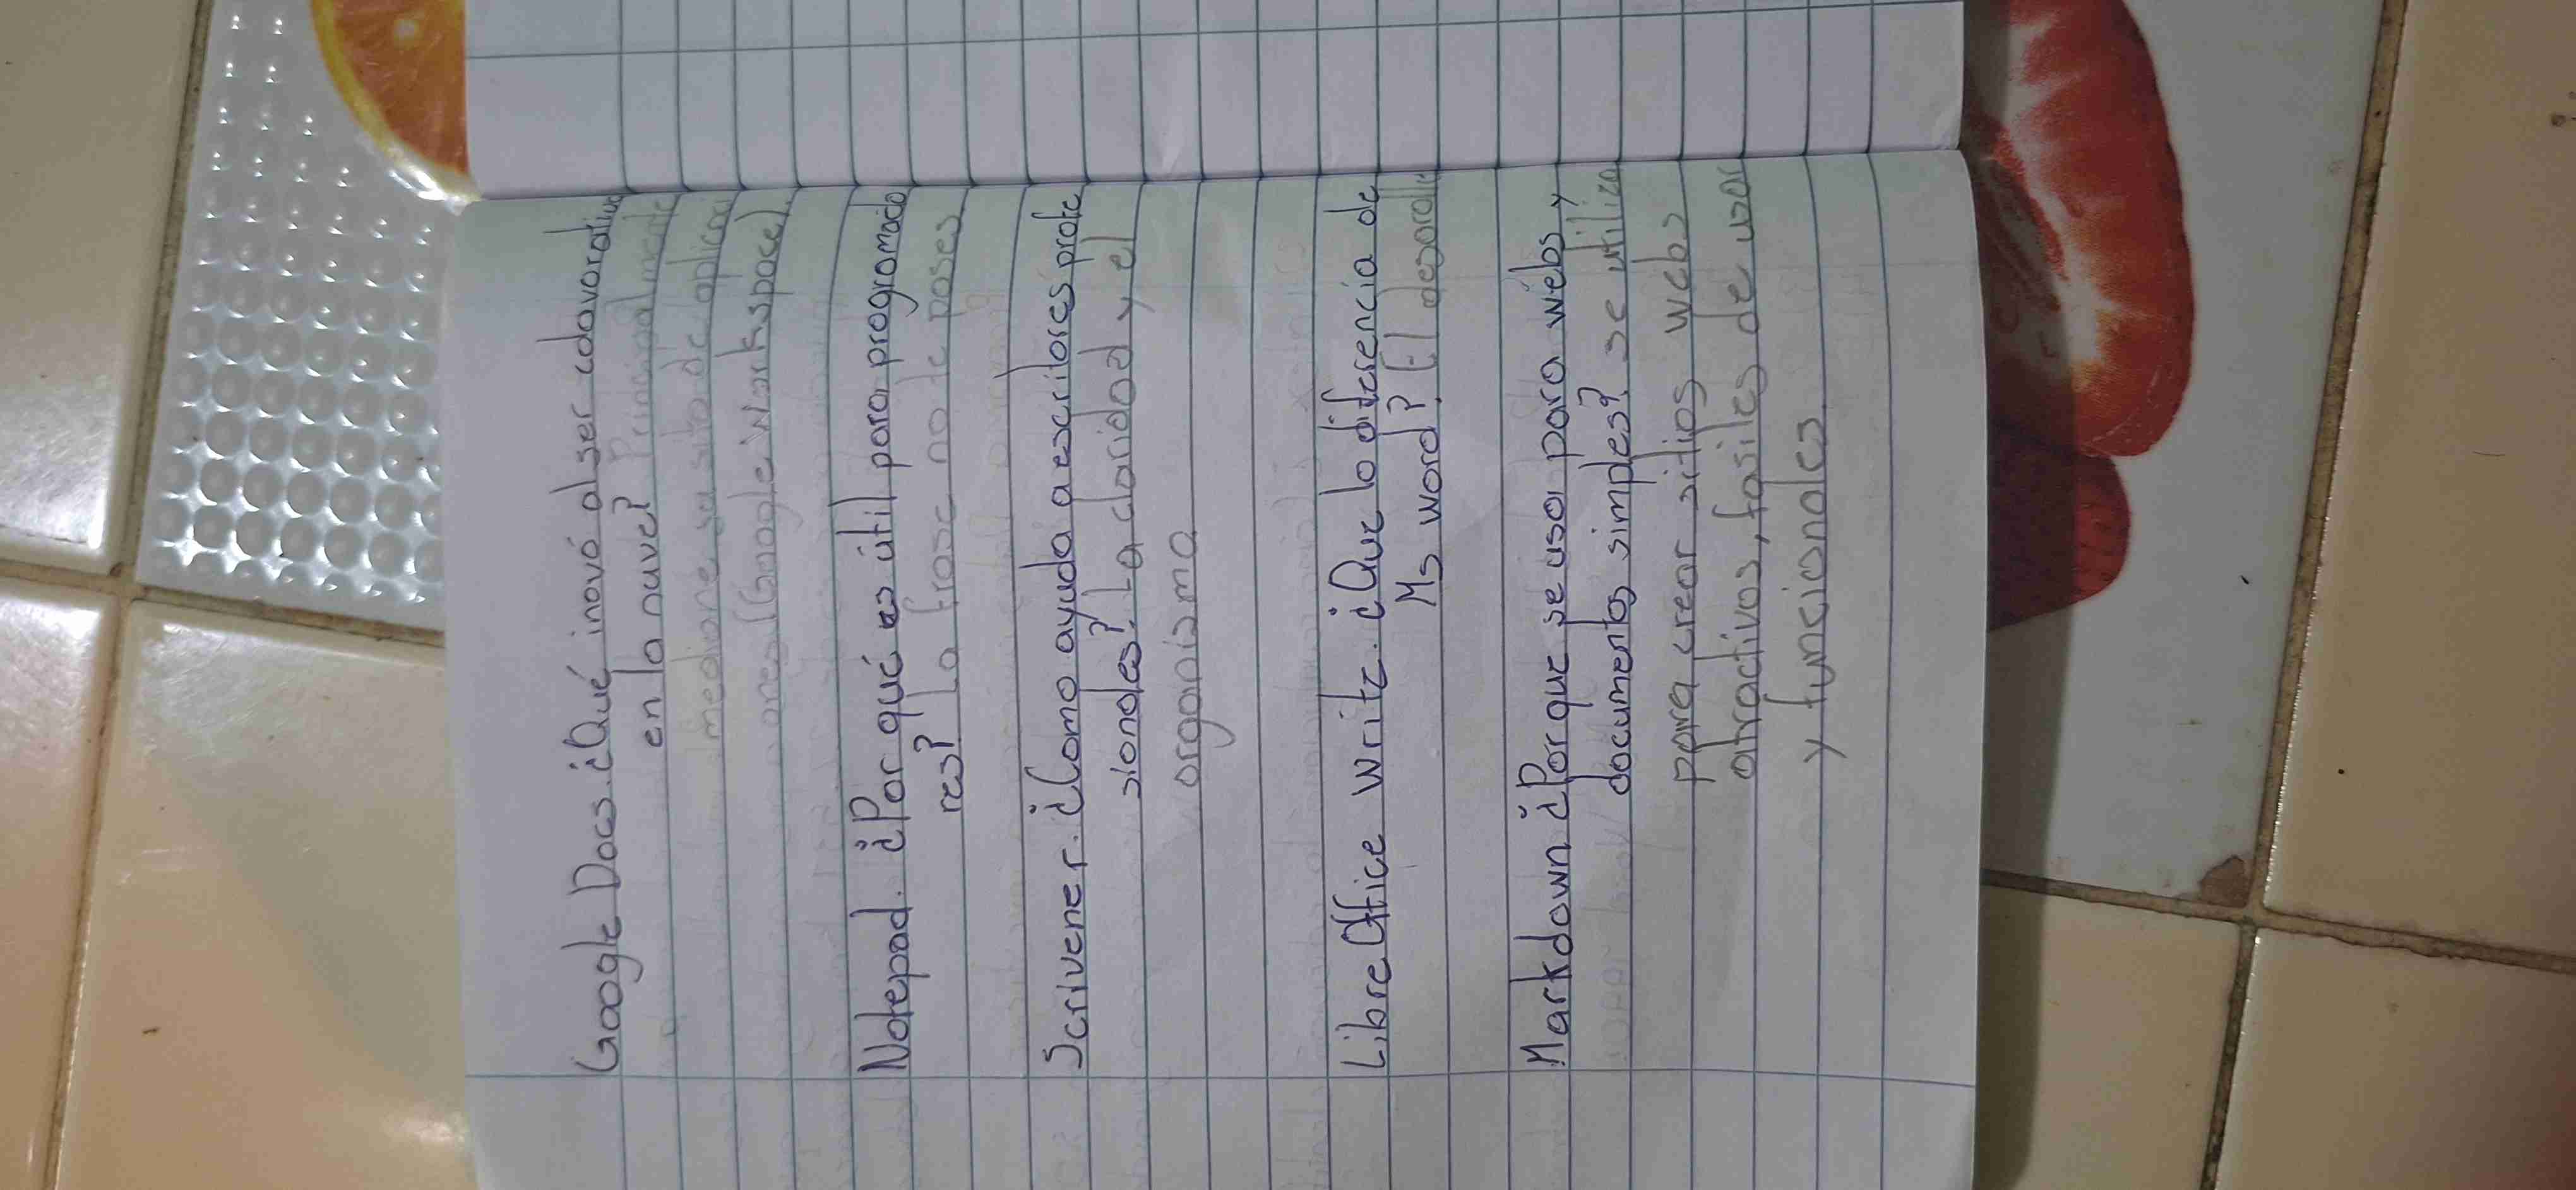 Google Docs. ¿Qué inovó al ser colavorativo
en la nuve? Principalmente
mediane su sito de aplicaci
ones (Google Workspace).
Notepad. ¿Por qué es útil para programado
res? La frase no te pases
Scrivener. ¿Como ayuda a escritores profe
sionales? La claridad y el
organizmo
Libre Office write. ¿Que lo diferencia de
Ms word? El desarollo
Markdown ¿Por que se usa para webs y
documentos simples? se utiliza
para crear sitios webs
atractivos, fasiles de usar
y funcionales.